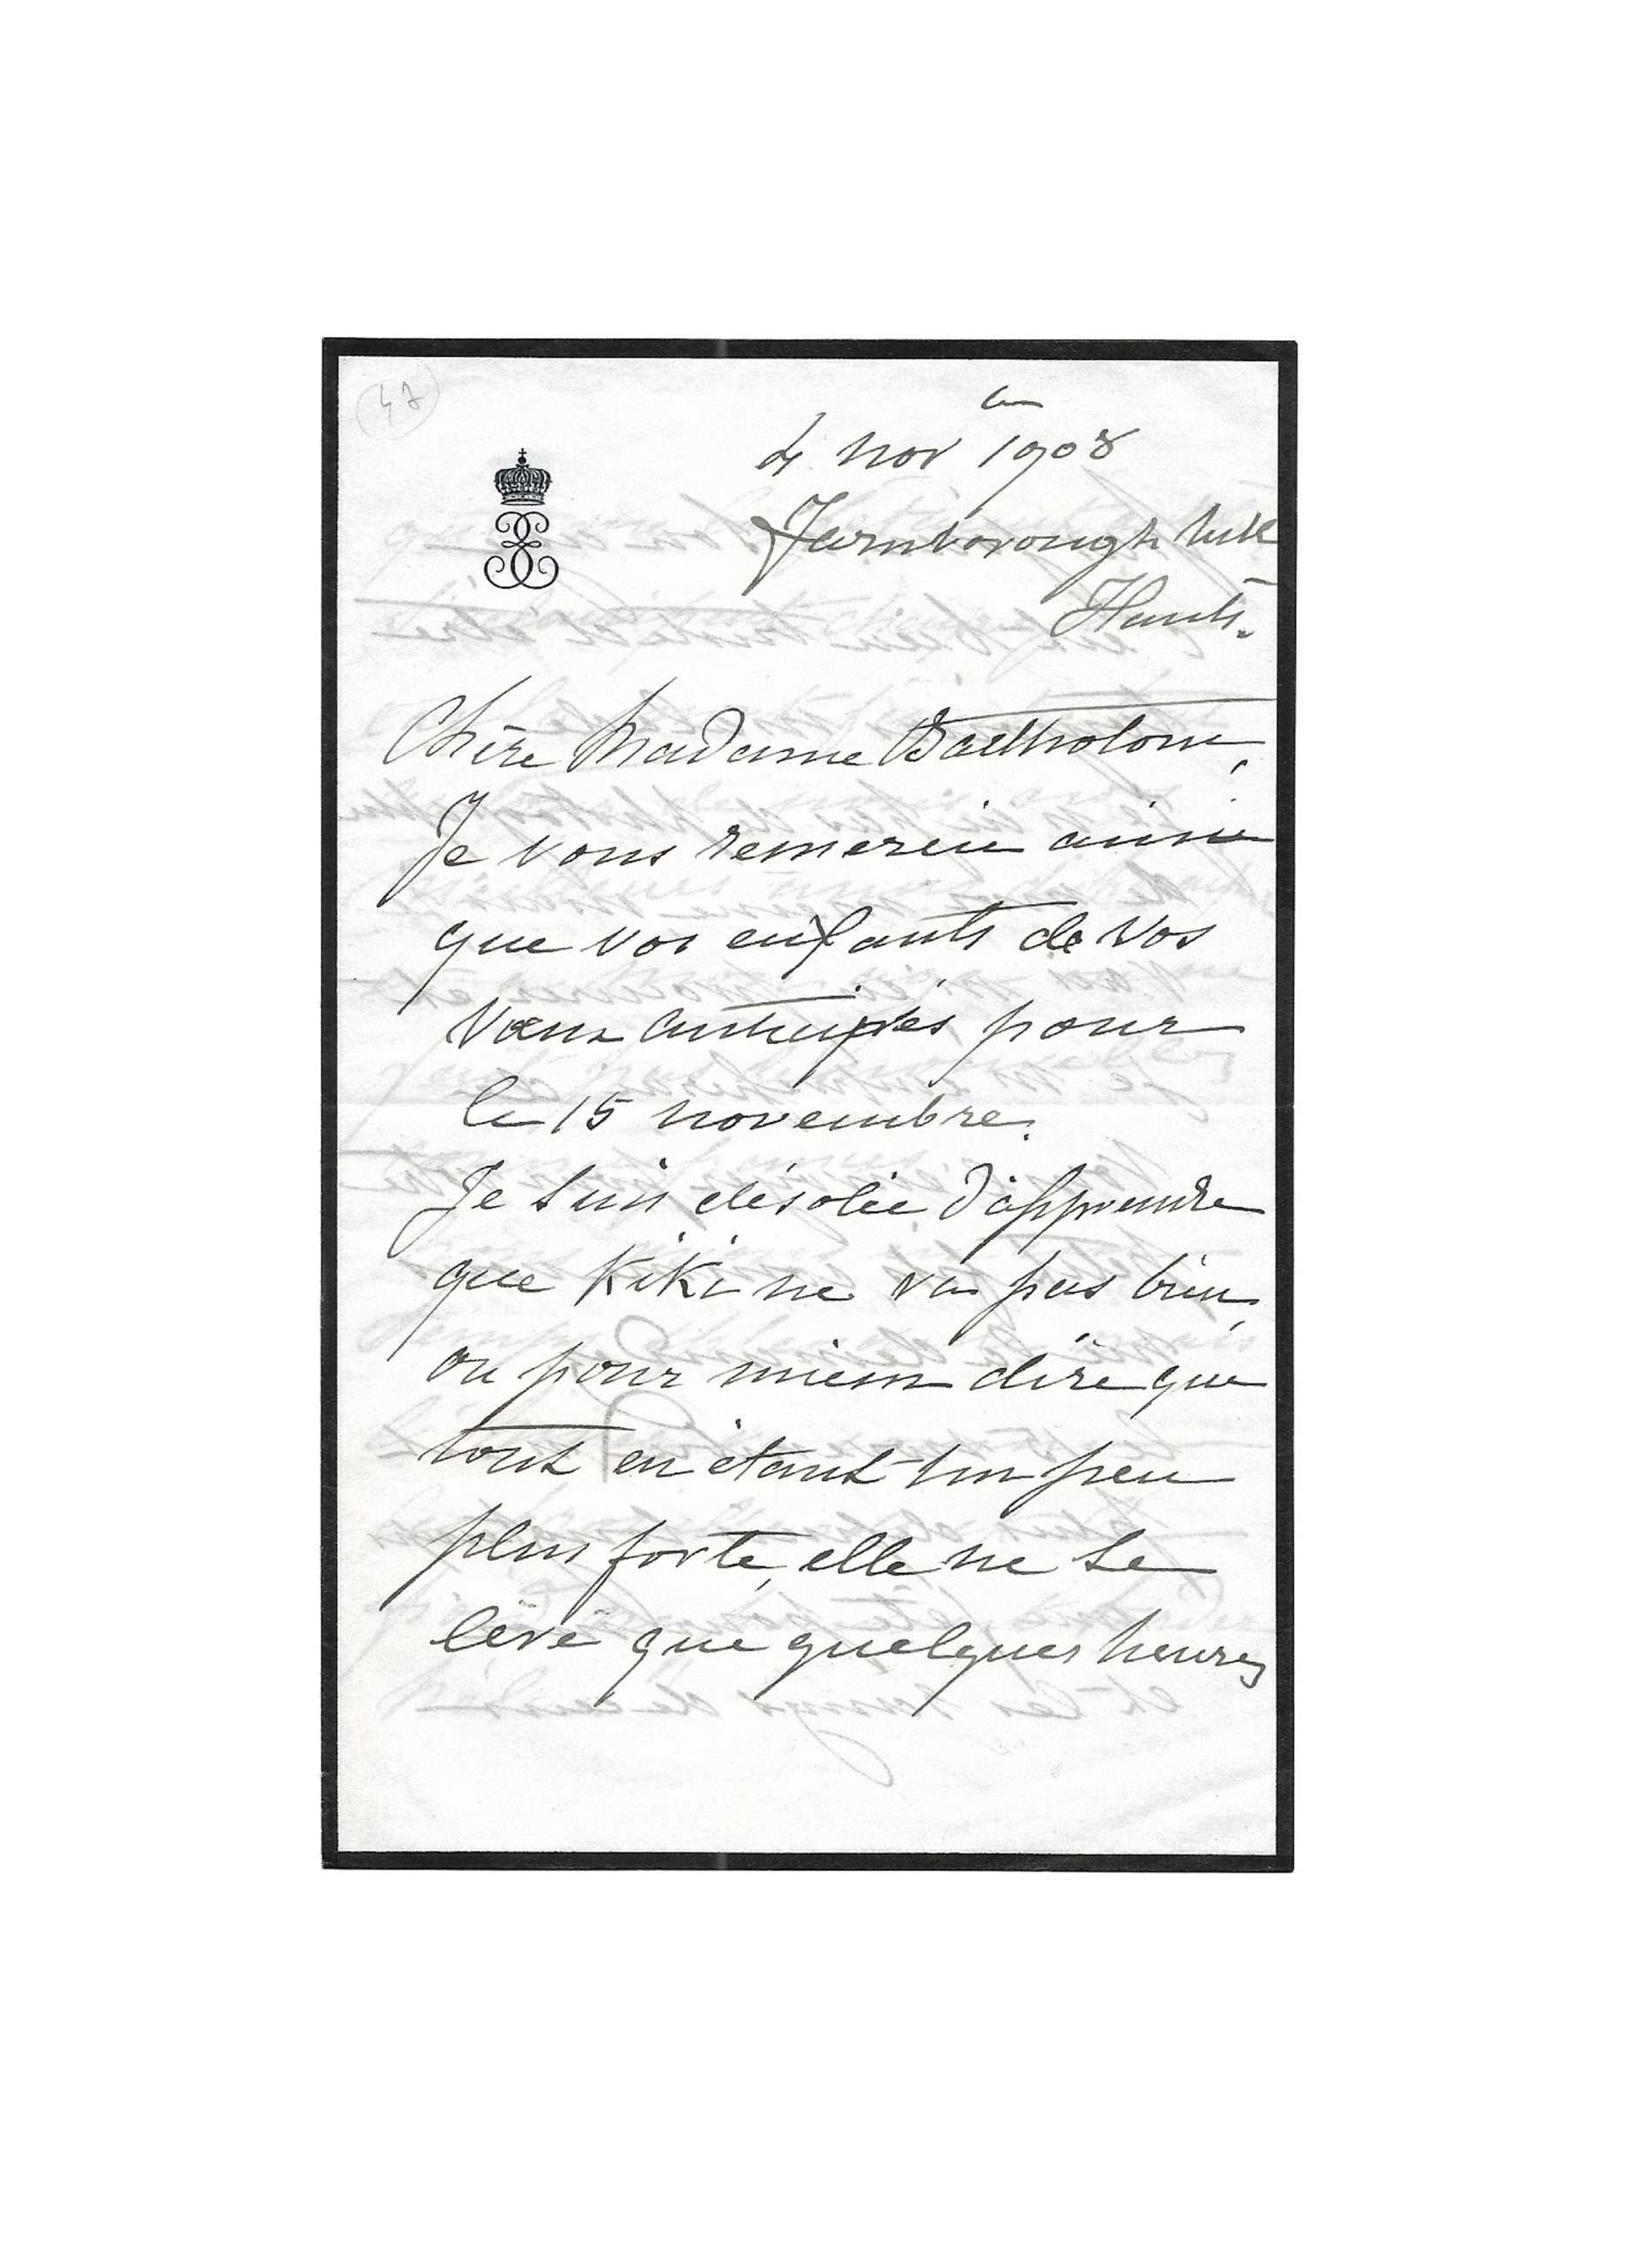 47
le
4 nov 1908
Farnborough hill
Hants.
Chère Madame Bartholoni,
Je vous remercie ainsi
que vos enfants de vos
vœux anticipés pour
le 15 novembre.
Je suis désolée d'apprendre
que Kiki ne va pas bien,
ou pour mieux dire que
tout en étant un peu
plus forte, elle ne se
lève que quelques heures